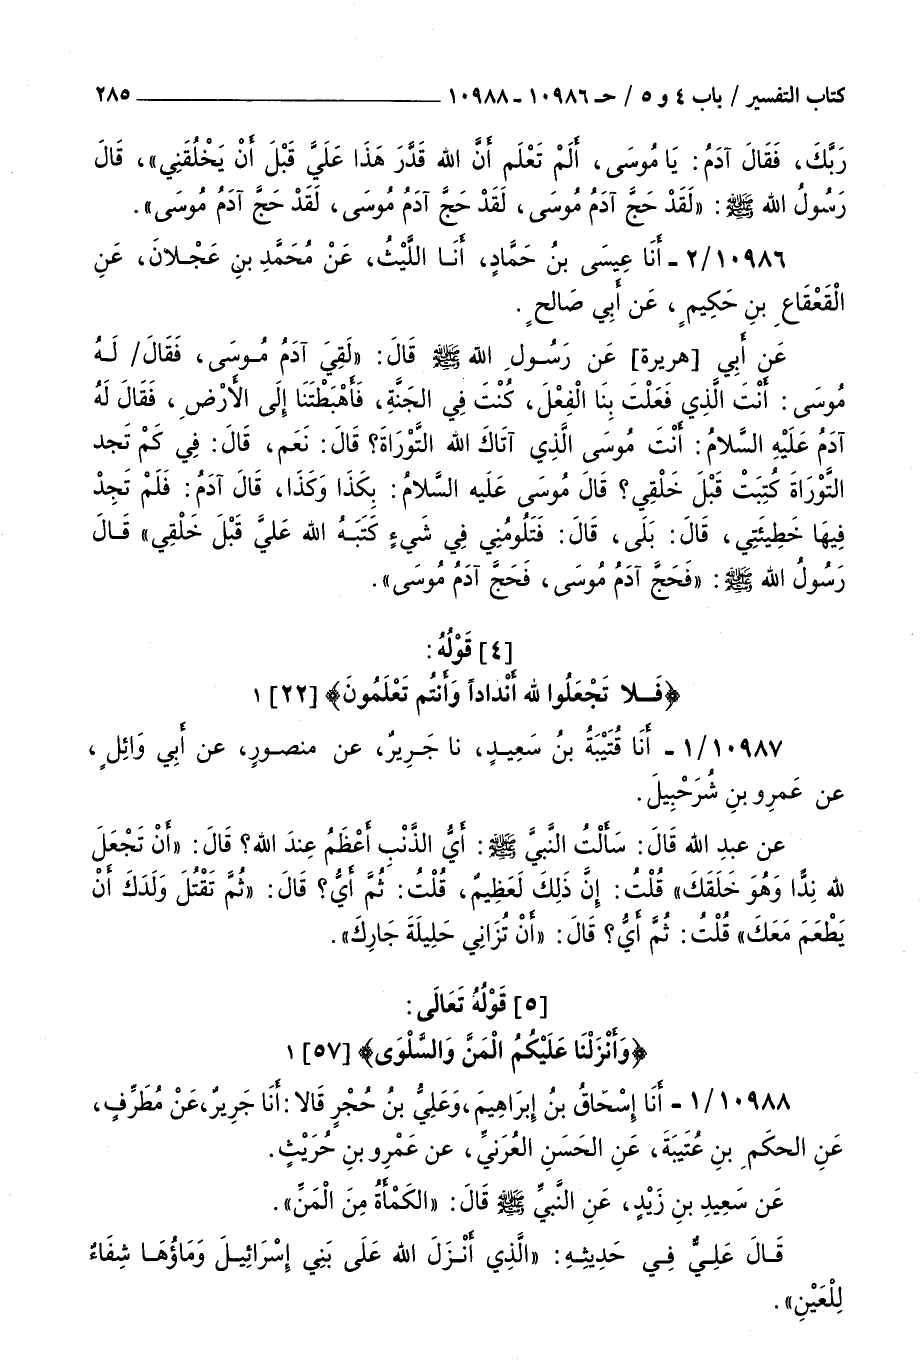 كتاب التفسير / باب ٤ و ٥ / حـ ١٠٩٨٦ - ١٠٩٨٨ ٢٨٥
رَبَّكَ، فَقَالَ آدَمُ: يَا مُوسَى، أَلَمْ تَعْلَم أَنَّ الله قَدَّرَ هَذَا عَلَيَّ قَبْلَ أَنْ يَخْلُقَنِي»، قَالَ
رَسُولُ الله ﷺ: «لَقَدْ حَجَّ آدَمُ مُوسَى، لَقَدْ حَجَّ آدَمُ مُوسَى، لَقَدْ حَجَّ آدَمُ مُوسَى».
٢/١٠٩٨٦ - أَنَا عِيسَى بنُ حَمَّادٍ، أَنَا اللَّيْثُ، عَنْ مُحَمَّدِ بنِ عَجْلانَ، عَنِ
الْقَعْقَاعِ بنِ حَكِيمٍ، عَن أَبِي صَالحٍ.
عَن أَبِي [هريرة] عَن رَسُولِ الله ﷺ قَالَ: «لَقِيَ آدَمُ مُوسَى، فَقَالَ/ لَهُ
مُوسَى: أَنْتَ الَّذِي فَعَلْتَ بِنَا الْفِعْلَ، كُنْتَ فِي الجَنَّةِ، فَأَهْبَطْتَنَا إِلَى الأَرْضِ، فَقَالَ لَهُ
آدَمُ عَلَيْهِ السَّلامُ: أَنْتَ مُوسَى الَّذِي آتَاكَ الله التَّوْرَاةَ؟ قَالَ: نَعَم، قَالَ: فِي كَمْ تَجد
التَّوْرَاةَ كُتِبَتْ قَبْلَ خَلْقِي؟ قَالَ مُوسَى عَلَيه السَّلامُ: بِكَذَا وَكَذَا، قَالَ آدَمُ: فَلَمْ تَجِدْ
فِيهَا خَطِيئَتِي، قَالَ: بَلَى، قَالَ: فَتَلُومُنِي فِي شَيءٍ كَتَبَهُ الله عَلَيَّ قَبْلَ خَلْقِي» قَالَ
رَسُولُ الله ﷺ: «فَحَجَّ آدَمُ مُوسَى، فَحَجَّ آدَمُ مُوسَى».
[٤] قَوْلُهُ:
﴿فَلا تَجْعَلُوا لله أَنْداداً وَأَنتُم تَعْلَمُونَ﴾ [٢٢] ١
١/١٠٩٨٧ - أَنَا قُتَيْبَةُ بنُ سَعِيدٍ، نا جَرِيرٌ، عن منصورٍ، عن أَبي وَائِلٍ،
عن عَمرِو بنِ شُرَحْبِيلَ.
عن عبدِ الله قَالَ: سَأَلْتُ النَّبيَّ ﷺ: أَيُّ الذَّنْبِ أَعْظَمُ عِندَ الله؟ قَالَ: «أَنْ تَجْعَلَ
لله نِدًّا وَهُوَ خَلَقَكَ» قُلْتُ: إِنَّ ذَلِكَ لَعَظِيمٌ، قُلْتُ: ثُمَّ أَيُّ؟ قَالَ: «ثُمَّ تَقْتُلَ وَلَدَكَ أَنْ
يَطْعَمَ مَعَكَ» قُلْتُ: ثُمَّ أَيُّ؟ قَالَ: «أَنْ تُزَانِي حَلِيلَةَ جَارِكَ».
[٥] قَوْلُهُ تَعَالَى:
﴿وَأَنْزَلْنَا عَلَيْكُمُ الْمَنَّ وَالسَّلْوَى﴾ [٥٧] ١
١/١٠٩٨٨ - أَنَا إِسْحَاقُ بنُ إِبَرَاهِيمَ،وَعَلِيُّ بنُ حُجْرٍ قَالا:أَنَا جَرِيرٌ،عَنْ مُطَرِّفٍ،
عَنِ الحكَمِ بنِ عُتَيبَةَ، عَنِ الحَسَنِ العُرَنيِّ، عن عَمْرِو بنِ حُرَيْثٍ.
عَن سَعِيدِ بنِ زَيْدٍ، عَنِ النَّبيِّ ﷺ قَالَ: «الكَمْأَةُ مِنَ الْمَنِّ».
قَالَ عَلِيٌّ فِي حَدِيثِهِ: «الَّذِي أَنْزَلَ الله عَلَى بَنِي إِسْرَائِيلَ وَمَاؤُهَا شِفَاءٌ
لِلْعَيْنِ».